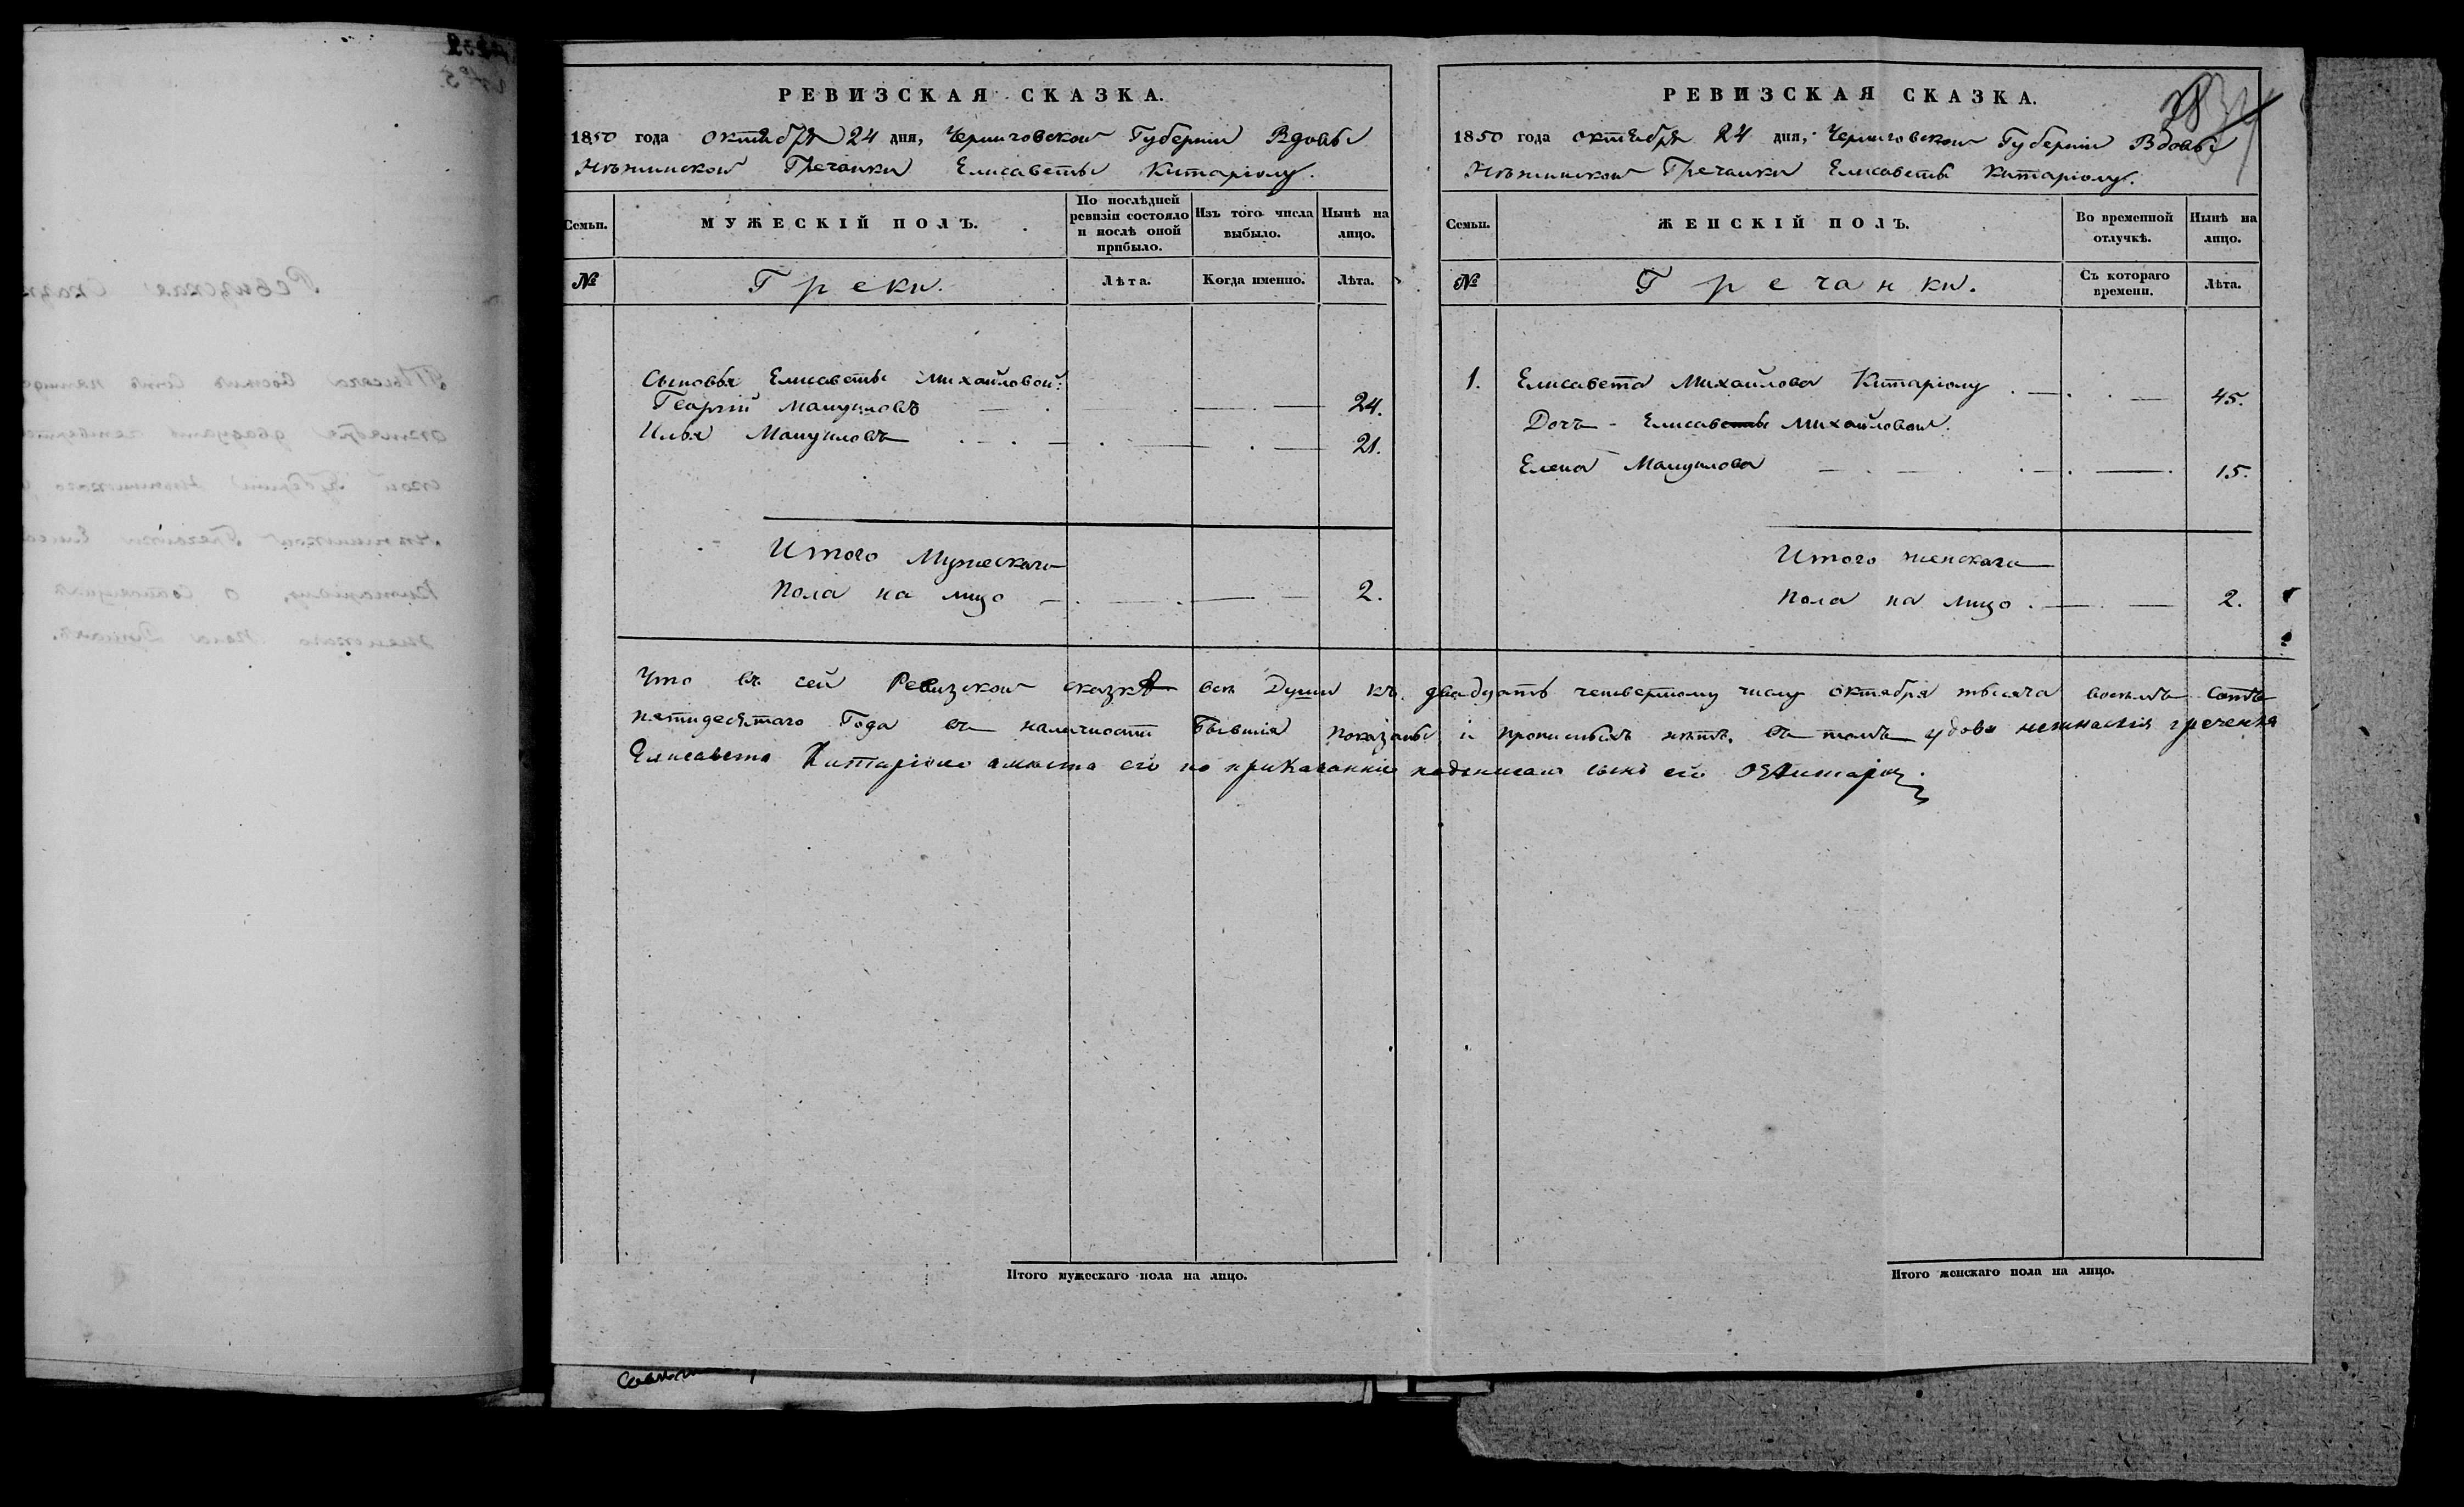 РЕВИЗСКАЯ СКАЗКА.
1850 года октября 24 дня, Черниговской Губернии Вдовы
Нѣжинской Гречанки Елисаветы Китаріолу.
Семьи.
МУЖЕСКІЙ ПОЛЪ.
По послѣдней ревизіи состояло и послѣ оной прибыло.
Изъ того числа выбыло.
Нынѣ на лицо.
№
Греки.
Лѣта.
Когда именно.
Лѣта.
Сыновья Елисаветы Михайловой:
Георгій Мануиловъ 24.
Илья Мануиловъ 21.
Итого Мужескаго
пола на лицо 2.
РЕВИЗСКАЯ СКАЗКА.
1850 года октября 24 дня, Черниговской Губерніи Вдовы
Нѣжинской Гречанки Елисаветы Китаріолу.
Семьи.
ЖЕНСКІЙ ПОЛЪ.
Во временной отлучкѣ.
Нынѣ на лицо.
№
Гречанки.
Съ котораго времени.
Лѣта.
1. Елисавета Михайлова Китаріолу 45.
Дочь - Елисаветы Михайловой.
Елена Мануилова 15.
Итого женскаго
пола на лицо 2.
Что въ сей Ревизской сказкѣ всѣ Души къ двадцать четвертому числу октября тысяча восемь сотъ
пятидесятаго Года въ наличности Бывшія показаны и прописныхъ нѣтъ. Въ томъ удова
Елисавета Китаріоло вместа его по приказанию подписал сынъ его
Итого мужескаго пола на лицо.
Итого женскаго пола на лицо.